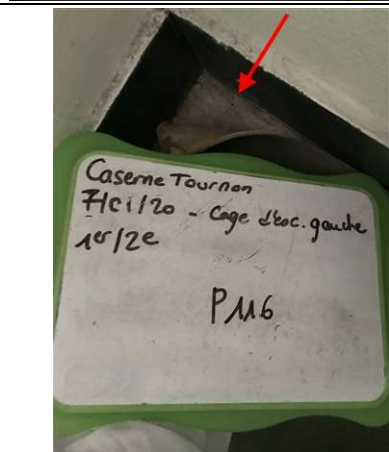 Caserne Tournon
7/01/20 - Cage d'esc. gauche
1er/2e
P116